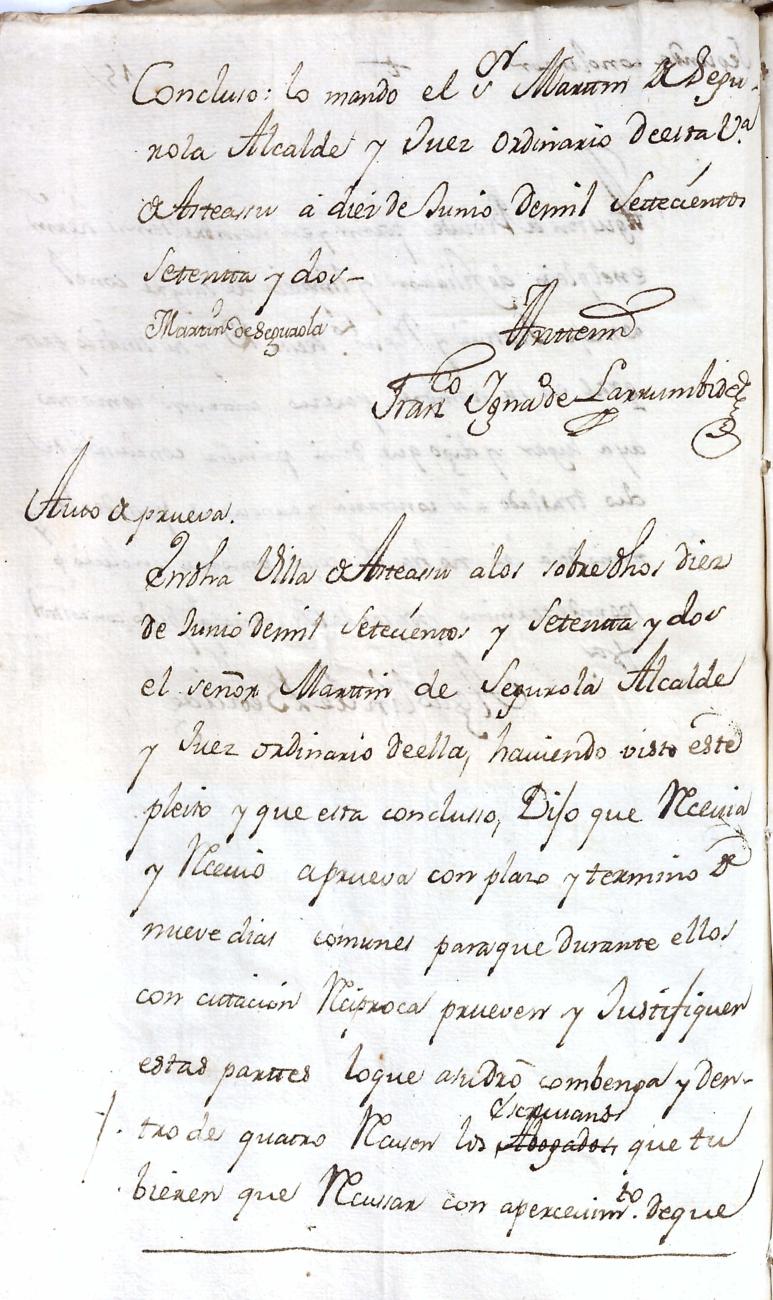 Concluso: lo mando el Sr Martin de Segu-
rola Alcalde y Juez ordinario deesta Va.
de Asteasu á diez de Junio demil Settecientos
Setentta y dos-
Martin de Segurola
Anttemi
Franco Ignao de Larrumbide
Auto de prueva.
En dha Villa de Asteasu a los sobredhos diez
de Junio demil Setecientos y Setentta y dos
el señor Martin de Segurola Alcalde
y Juez ordinario deella, haviendo visto este
pleito y que esta conclusso, Dijo que Recevia
y Recevio aprueva con plazo y termino de
nueve dias comunes paraque durante ellos
con cittación Reciproca prueven y Justifiquen
estas parttes loque asudro combenga y den-
escrivanos
tro de quatro Recusen los Abogados, que tu
bieren que Recussar con apercevimto. deque